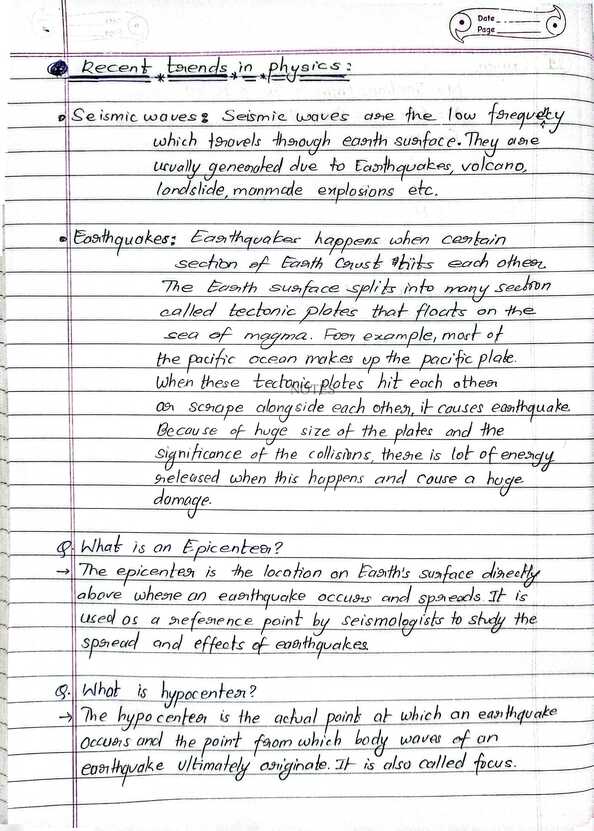 Date
Page
Recent trends in physics:
Seismic waves: Seismic waves are the low frequecy
which travels through earth surface. They are
usually generated due to Earthquakes, volcano,
landslide, manmade explosions etc.
Earthquakes: Earthquakes happens when certain
section of Earth Crust hits each other.
The Earth surface splits into many section
called tectonic plates that floats on the
sea of magma. For example, most of
the pacific ocean makes up the pacific plate.
When these tectonic plates hit each other
NOTES
or scrape alongside each other, it causes earthquake.
Because of huge size of the plates and the
significance of the collisions, there is lot of energy
released when this happens and cause a huge
damage.
Q. What is an Epicenter?
→ The epicenter is the location on Earth's surface directly
above where an earthquake occurs and spreads. It is
used as a reference point by seismologists to study the
spread and effects of earthquakes.
Q. What is hypocenter?
→ The hypocenter is the actual point at which an earthquake
occurs and the point from which body waves of an
earthquake ultimately originate. It is also called focus.